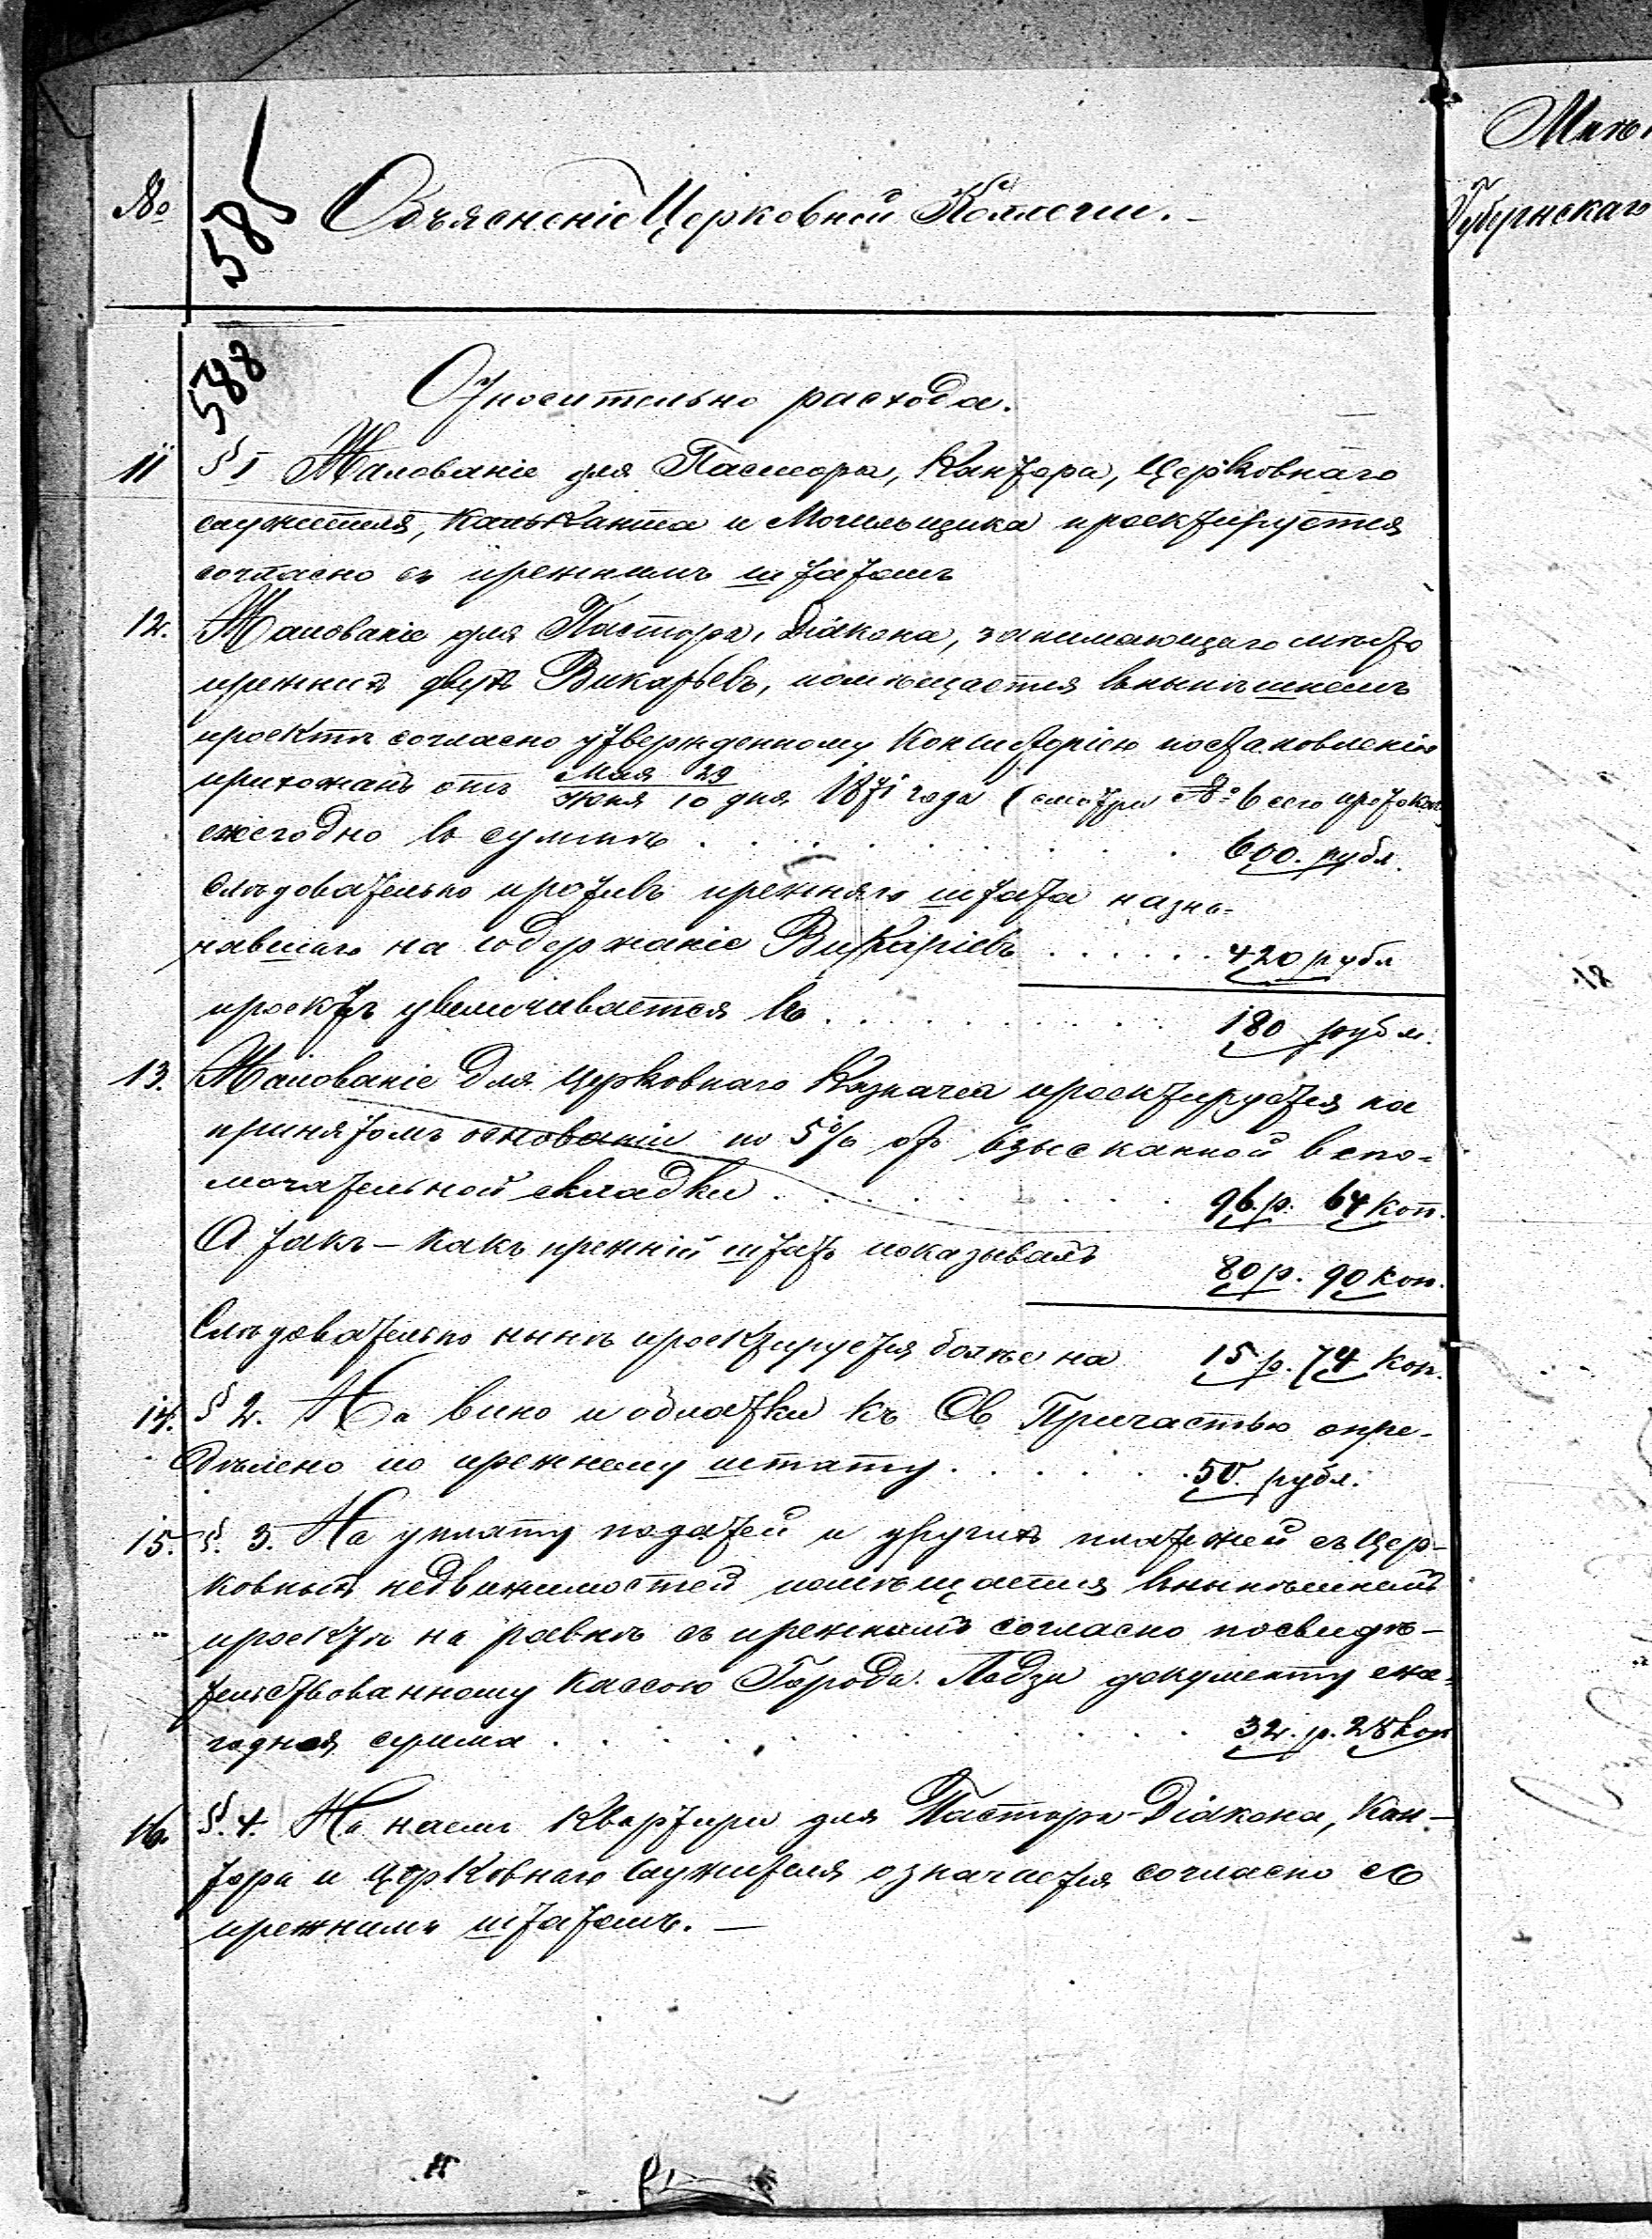 №
585
Объясненіе Церковной Коллегіи.—
Мини
Губернскаго
588
Относительно расхода.
11 § 1 Жалованіе для Пастора, Кантора, Церковнаго
служителя, Кальканта и Могильщика проектируется
согласно съ прежнимъ штатомъ
12. Жалованіе для Пастора, Діакона, занимающаго мѣсто
прежнихъ двухъ Викаріевъ, помѣщается въ нынѣшнемъ
проектѣ согласно утвержденному Консисторіею постановленію
прихожанъ отъ Мая 29 / Іюня 10 дня 1871 года (смотри № 6 сего протокола
ежегодно въ суммѣ . . . . . . . . . 600. рубл.
Слѣдовательно противъ прежняго штата назна=
чавшаго на содержаніе Викаріевъ . . . . . . 420 рубл
проектъ увеличивается въ . . . . . . . . . 180 рубл.
13. Жалованіе для Церковнаго Казначея проектируется на
принятомъ основаніи по 5% отъ взысканной вспо=
могательной складки . . . . . . . . 96. р. 64 коп.
А такъ—какъ прежній штатъ показывалъ 80 р. 90 коп.
Слѣдовательно нынѣ проектируется болѣе на 15 р. 74 коп.
14. § 2. На вино и облатки къ Св Причастью опре-
дѣлено по прежнему штату . . . . . . 50. рубл.
15. §. 3. На уплату податей и другихъ платежей съ Цер-
ковныхъ недвижимостей помѣщается въ нынѣшнемъ
проектѣ на равнѣ съ прежнимъ согласно посвидѣ-
тельствованному кассою Города Лодзи документу еже=
годная сумма . . . . . . . . . . 32. р. 28 коп
16. §. 4. На наемъ квартиры для Пастора-Діакона, Кан-
тора и Церковнаго Служителя означается согласно съ
прежнимъ штатомъ.—